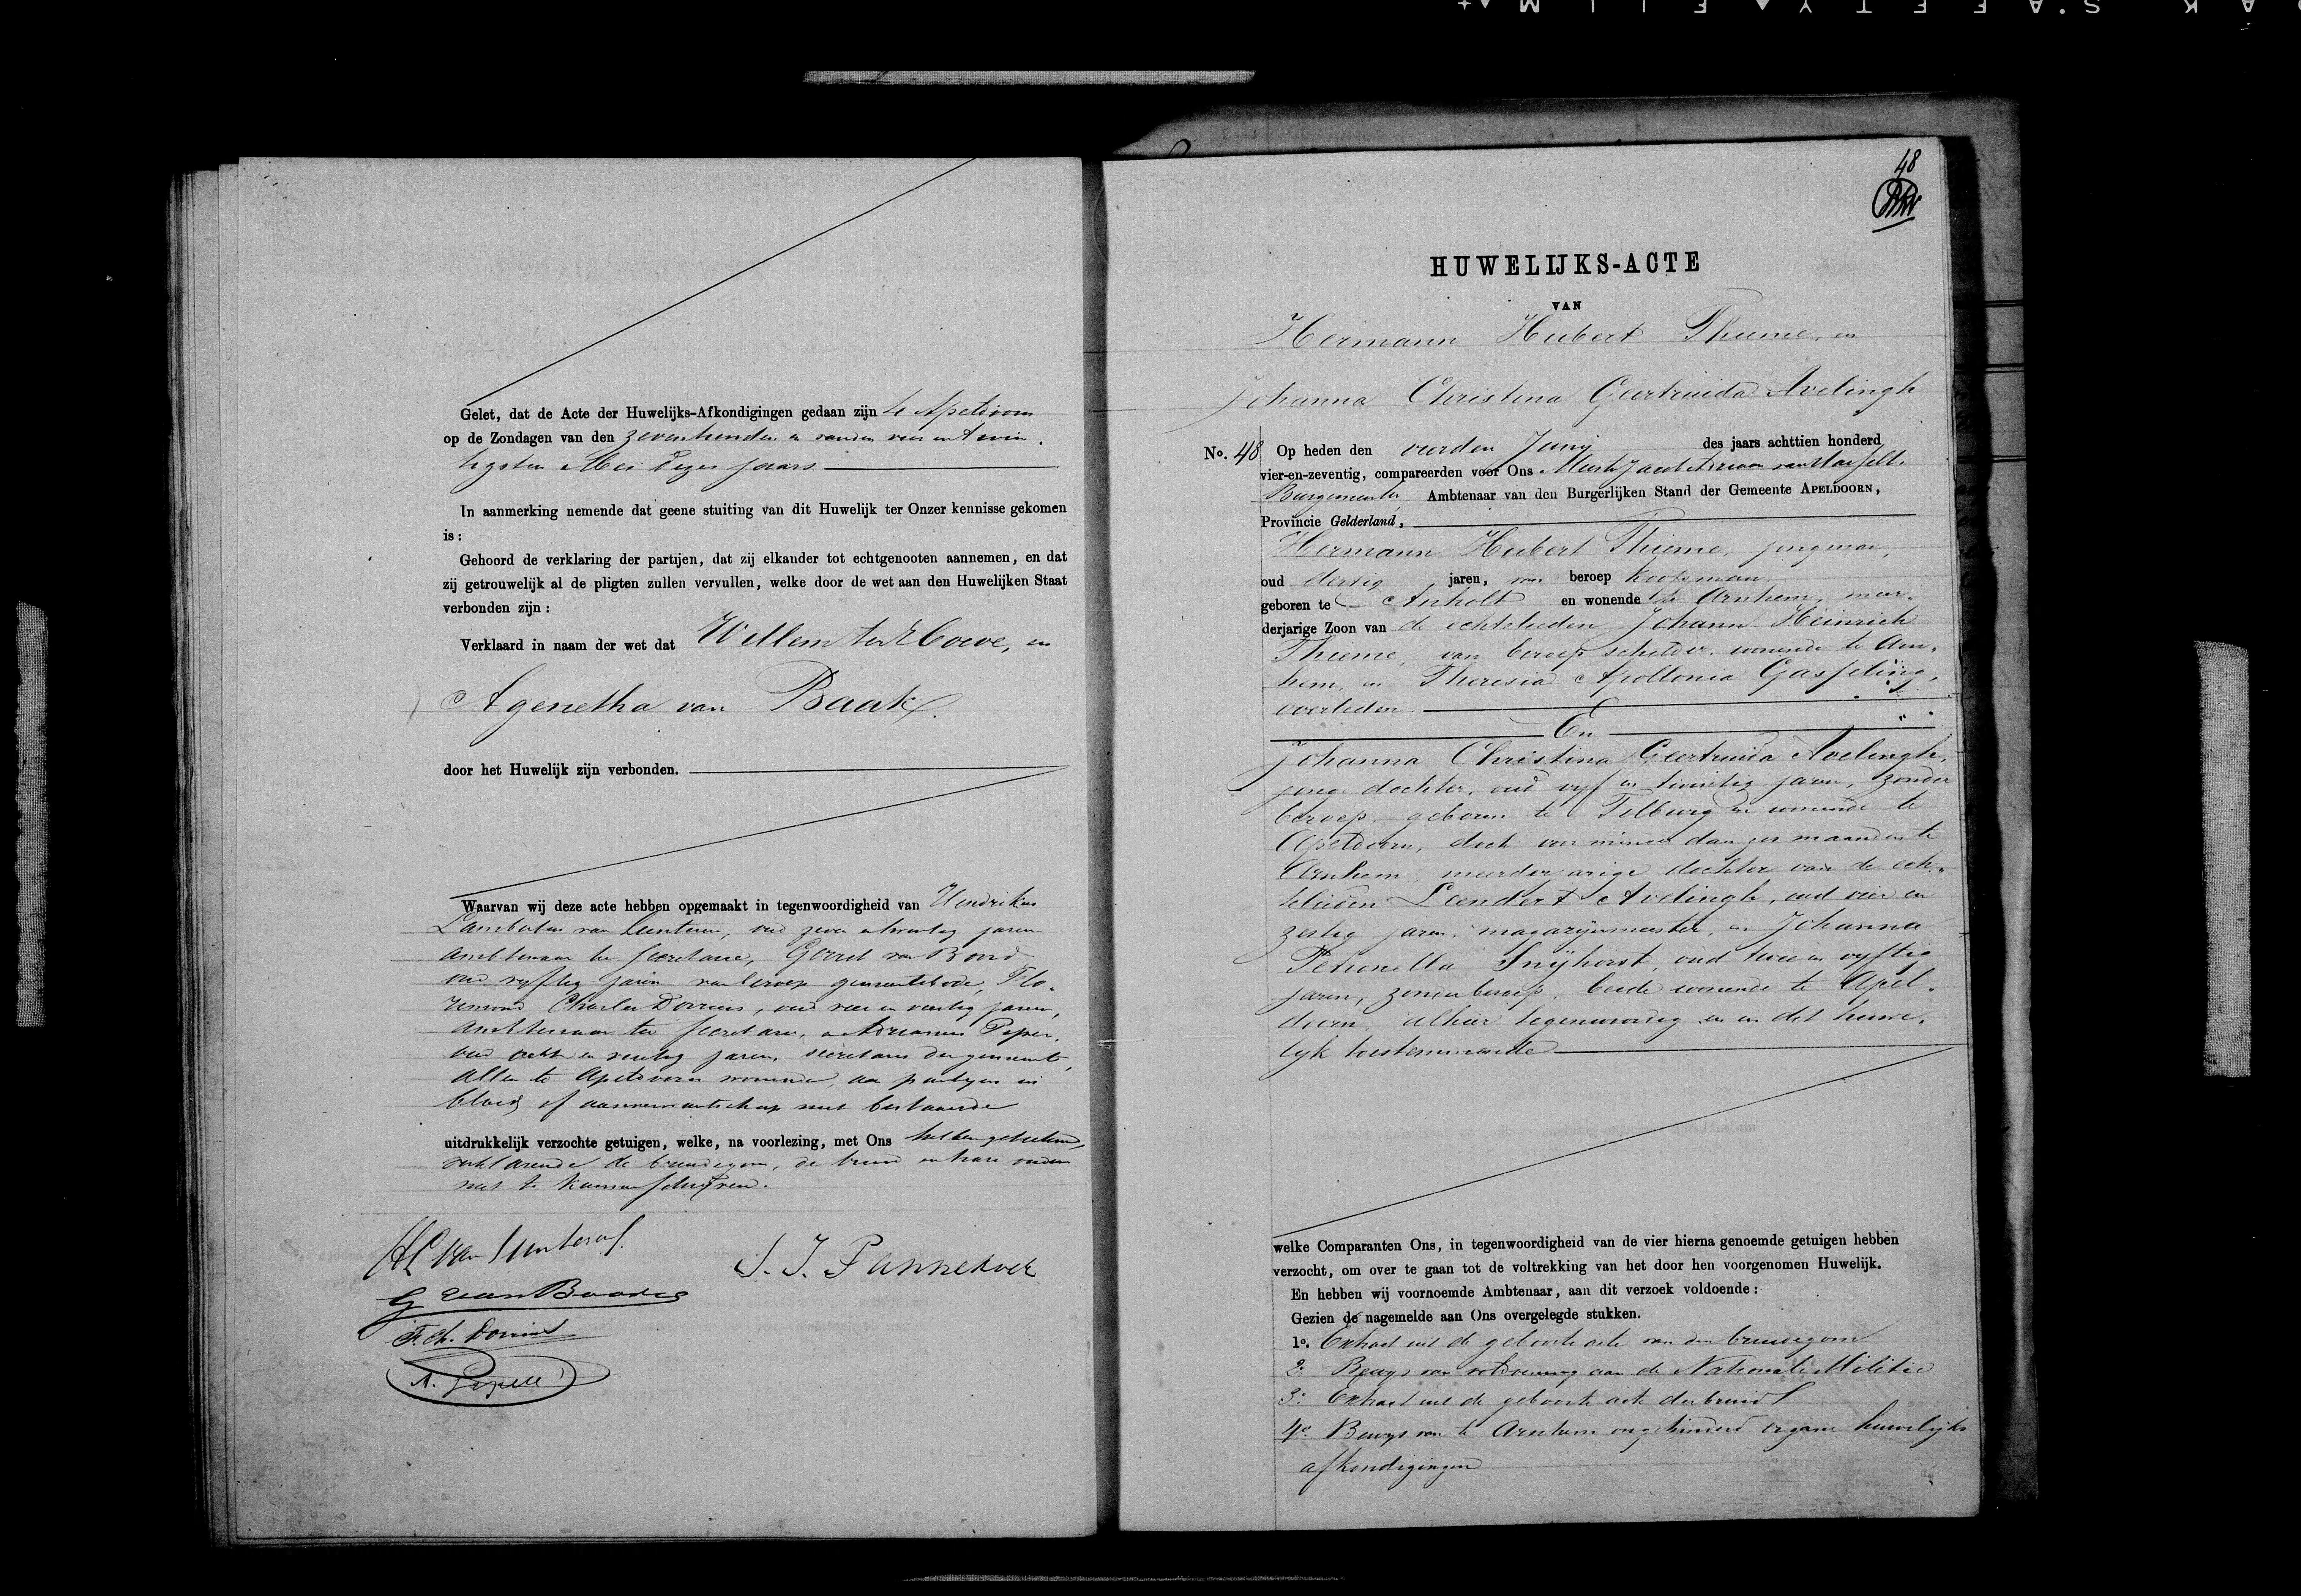 Gelet, dat de Acte der Huwelijks-Afkondigingen gedaan zijn te Apeldoorn
op de Zondagen van den zeventienden en van den vier en twin-
tigsten Mei dezes jaars
In aanmerking nemende dat geene stuiting van dit Huwelijk ter Onzer kennisse gekomen
is:
Gehoord de verklaring der partijen, dat zij elkander tot echtgenooten aannemen, en dat
zij getrouwelijk al de pligten zullen vervullen, welke door de wet aan den Huwelijken Staat
verbonden zijn:
Verklaard in naam der wet dat Willem ter Hoeve, en
Agenetha van Baak
door het Huwelijk zijn verbonden.
Waarvan wij deze acte hebben opgemaakt in tegenwoordigheid van Hendrikus
Lambertus van Lunteren, oud zeven en twintig jaren
ambtenaar ter secretarie, Gerret van
oud vyftig jaren van beroep gemeentebode, Flo-
Charles Dorrius, oud vier en veertig jaren,
ambtenaar ter secretarie, en Adrianus
oud acht en veertig jaren, secretaris der gemeente,
allen te Apeldoorn wonende, aan partyen in
bloed of aanverwantschap niet bestaande
uitdrukkelijk verzochte getuigen, welke, na voorlezing, met Ons hebben geteekend,
verklarende de bruidegom, de bruid en hare ouders
niet te kunnen schryven.
HL van Lunteren
G van
F. Ch. Dorrius
A.
J. J. Pannekoek
48
HUWELIJKS-ACTE
VAN
Hermann Hubert Thieme, en
Johanna Christina Geertruida Avelingh
No. 48 Op heden den vierden Junij des jaars achttien honderd
vier-en-zeventig, compareerden voor Ons Meester Jacob Adriaan van Hasselt
Burgemeester Ambtenaar van den Burgerlijken Stand der Gemeente APELDOORN,
Provincie Gelderland,
Hermann Hubert Thieme, jongman,
oud dertig jaren, van beroep koopman
geboren te Anholt en wonende te Arnhem, meer-
derjarige Zoon van de echtelieden Johann Heinrich
Thieme, van beroep schilder wonende te Arn-
hem, en Theresia Apollonia Gasseling,
overleden
En
Johanna Christina Geertruida Avelingh,
jonge dochter, oud vyf en twintig jaren, zonder
beroep, geboren te Tilburg en wonende te
Apeldoorn, doch voor minder dan zes maanden te
Arnhem, meerderjarige dochter van de echte-
lieden Leendert Avelingh, oud vier en
zestig jaren, magazijnmeester, en Johanna
Petronella Snijhorst, oud twee en vyftig
jaren, zonder beroep, beide wonende te Apel-
doorn, alhier tegenwoordig en in dit huwe-
lyk toestemmende
welke Comparanten Ons, in tegenwoordigheid van de vier hierna genoemde getuigen hebben
verzocht, om over te gaan tot de voltrekking van het door hen voorgenomen Huwelijk.
En hebben wij voornoemde Ambtenaar, aan dit verzoek voldoende:
Gezien de nagemelde aan Ons overgelegde stukken.
1o. Extract uit de geboorte acte van den bruidegom
2o. Bewys van voldoening aan de Nationale Militie
3o. Extract uit de geboorte acte der bruid
4o. Bewys van te Arnhem ongehinderd ergane huwelijks
afkondigingen